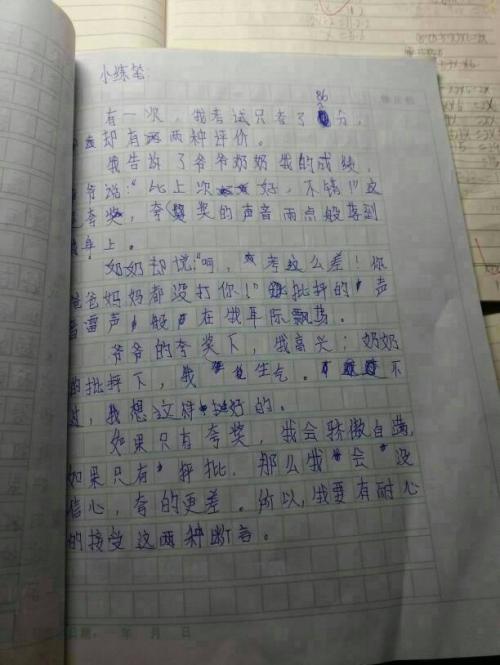 小练笔:
有一次，我考试只考了86分，
却有两种评价。
我告诉了爷爷奶奶我的成绩，
爷说："比上次好，不错！"这
夸奖，夸奖的声音雨点般落到
耳上。
奶奶却说："啊，考这么差！你
爸爸妈妈都没打你！"批评的声
雷声般在我耳际飘荡。
爷爷的夸奖下，我高兴；奶奶
的批评下，我生气。不
过，我想这样好的。
如果只有夸奖，我会骄傲自满，
如果只有评批，那么我会没
信心，夸的更差。所以，我要有耐心
的接受这两种断言。
年 月 日